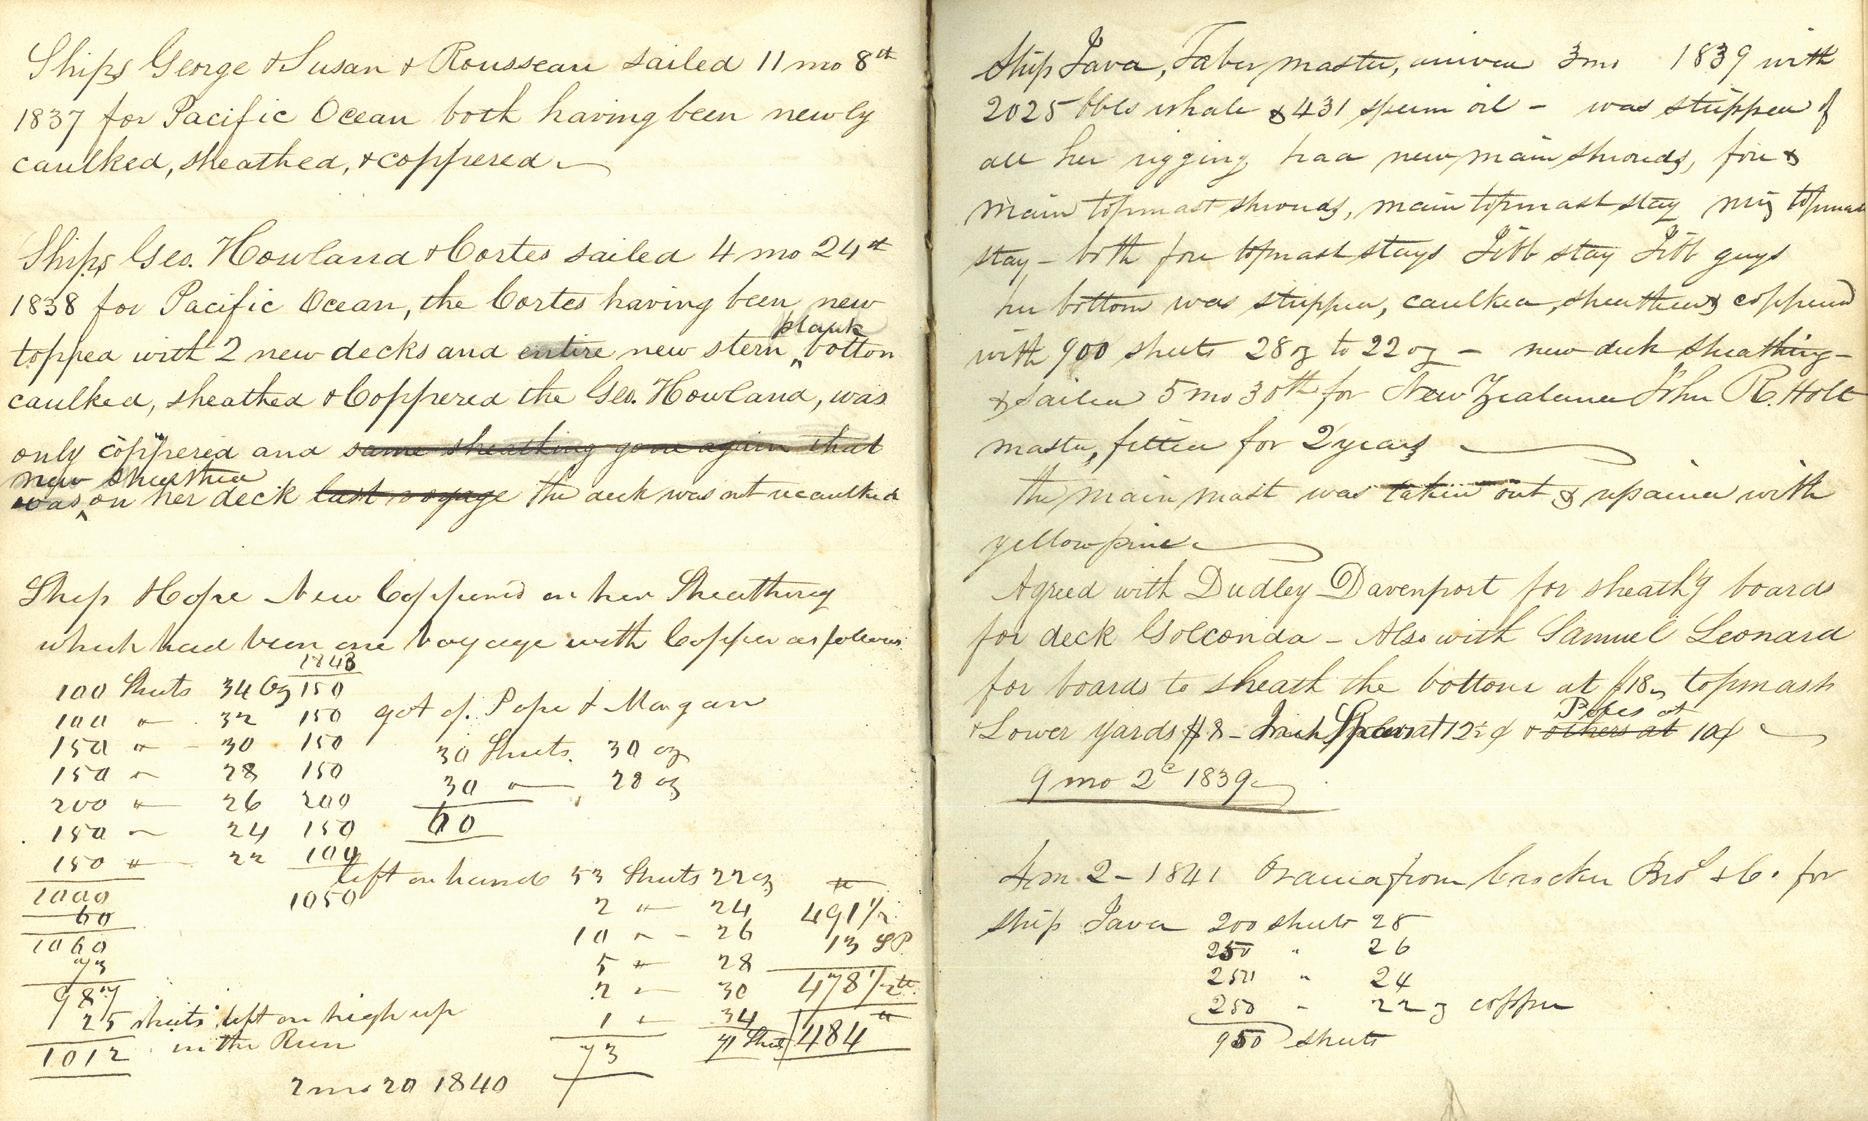 Ships George & Susan & Rousseau sailed 11 mo 8th
1837 for Pacific Ocean both having been newly
caulked, sheathed, & coppered
Ships Geo. Howland & Cortes sailed 4 mo 24th
1838 for Pacific Ocean, the Cortes having been new
plank
topped with 2 new decks and entire new stern, botton
caulked, sheathed & Coppered the Geo. Howland, was
only coppered and same sheathing gone again that
new sheathed
was on her deck last voyage the deck was not recaulked
Ship Hope New Coppered on her Sheathing
which had been one voyage with Copper as follows
1843
100 Sheets 34 oz 150
100 " 32 150
150 " 30 150
150 " 28 150
200 " 26 200
150 " 24 150
150 " 22 100
1000 1050
60
1060
73
987
25 sheets left on high up
1012 in the Run
2 mo 20 1840
got of Pope & Morgan
30 Sheets 30 oz
30 " 28 oz
60
left on hand 53 Sheets 22 oz
2 " 24
10 " 26
5 " 28
2 " 30
1 " 34
73
491 1/2
13
478 1/2
484
Ship Java, Taber master, arrived 3 mo 1839 with
2025 bbls whale & 431 sperm oil - was stripped of
all her rigging had new main shrouds, fore &
main topmast shrouds, main topmast stay miz topmast
stay - both fore topmast stays Jibb stay Jibb guys
her bottom was stripped, caulked, sheathed & coppered
with 900 sheets 28 oz to 22 oz - new deck sheathing -
& sailed 5 mo 30th for New Zealand John R. Holt
master, fitted for 2 years
the main mast was taken out & repaired with
yellow pine
Agreed with Dudley Davenport for sheath'g boards
for deck Golconda - Also with Samuel Leonard
for boards to sheath the bottom at $18, topmasts
Poles at
& Lower yards $8 - Spars at 12 ¢ & others at 10¢
9 mo 2d 1839
4 m 2 - 1841 from Crocker Bros & Co. for
ship Java 200 sheets 28
250 " 26
250 " 24
250 " 22 oz copper
950 sheets